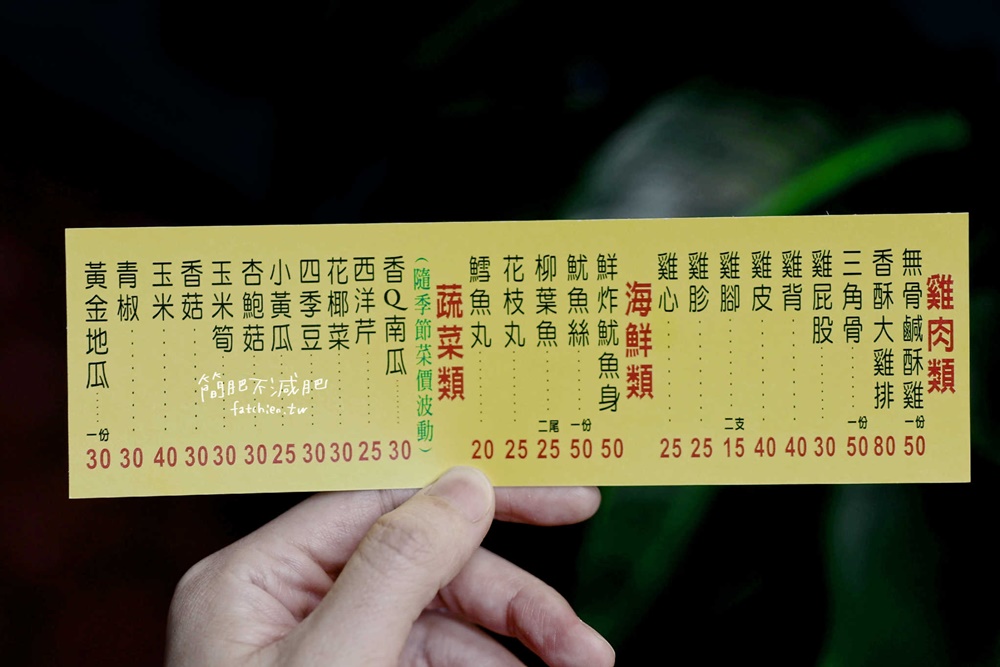 雞肉類
無骨鹹酥雞 一份 50
香酥大雞排 80
三角骨 一份 50
雞屁股 30
雞背 40
雞皮 40
雞腳 二支 15
雞胗 25
雞心 25
海鮮類
鮮炸魷魚身 50
魷魚絲 一份 50
柳葉魚 二尾 25
花枝丸 25
鱈魚丸 20
蔬菜類
(隨季節菜價波動)
香Q南瓜 30
西洋芹 25
花椰菜 30
四季豆 30
小黃瓜 25
杏鮑菇 30
玉米筍 30
香菇 30
玉米 40
青椒 30
黃金地瓜 一份 30
簡肥不減肥
fatchien.tw